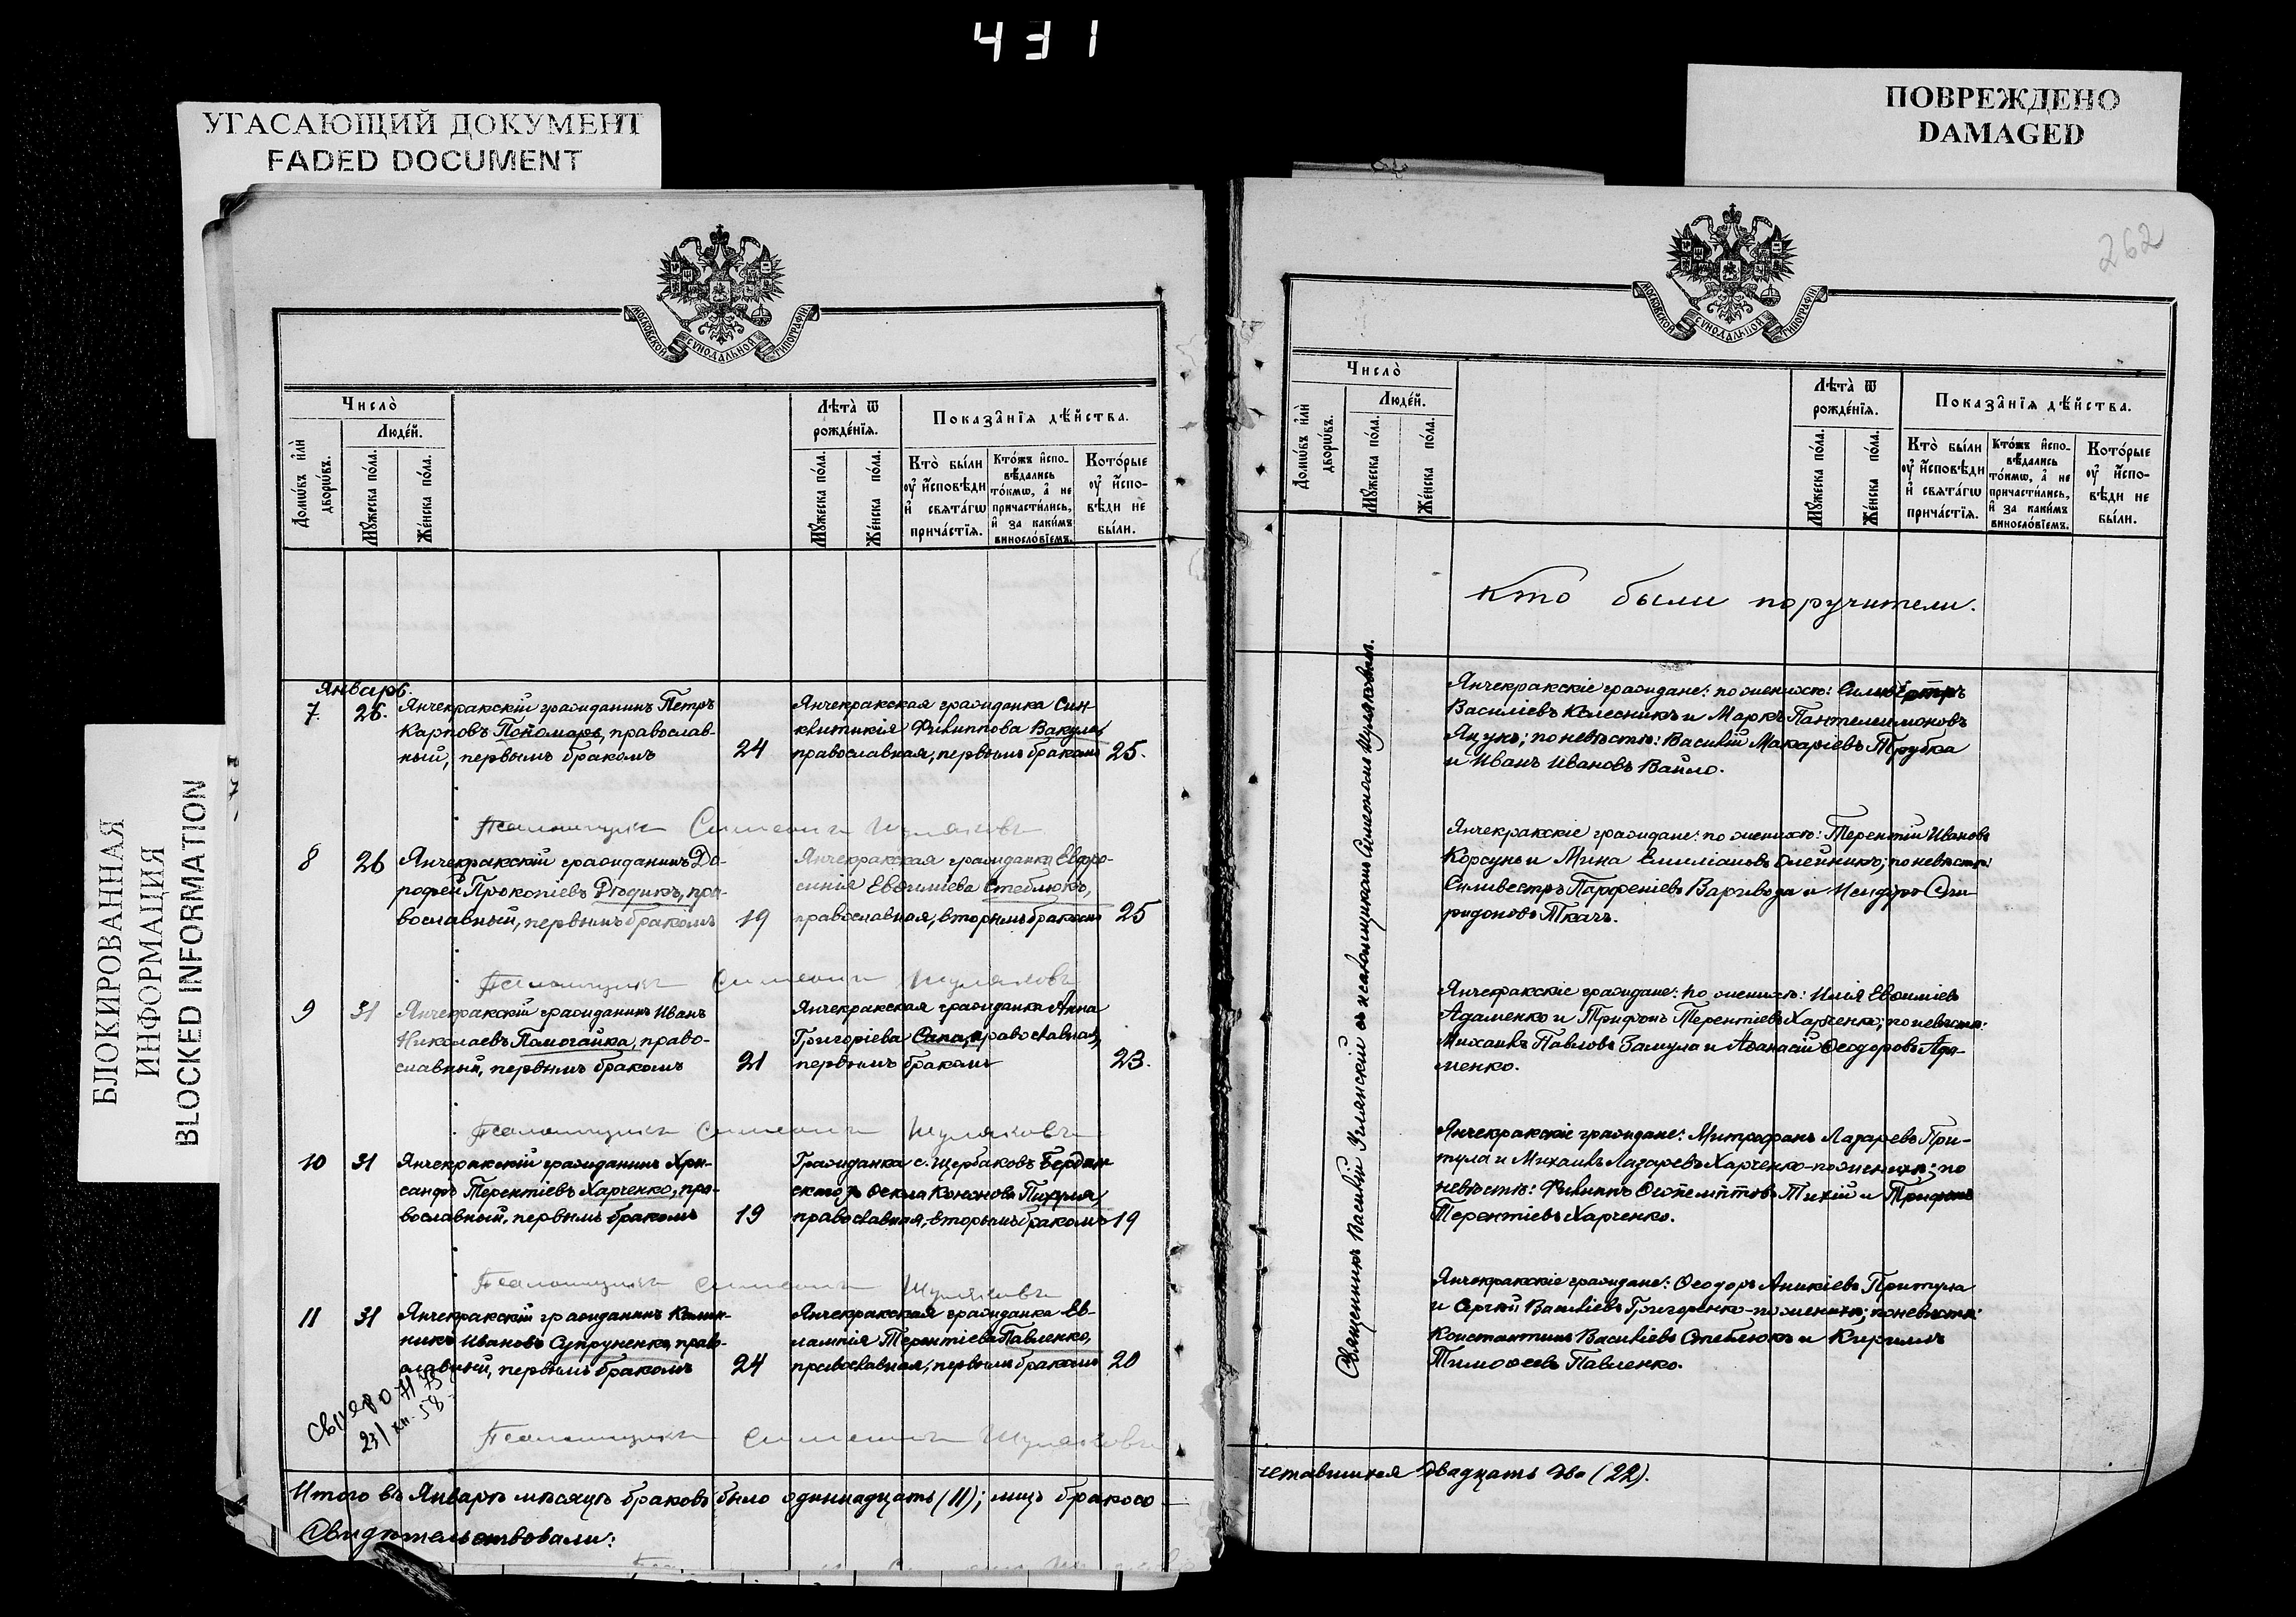 431
УГАСАЮЩИЙ ДОКУМЕНТ
FADED DOCUMENT
ПОВРЕЖДЕНО
DAMAGED
БЛОКИРОВАННАЯ
ИНФОРМАЦИЯ
BLOCKED INFORMATION
МОСКОВСКОЙ СУНОДАЛЬНОЙ ТИПОГРАФІИ
Число̀
Домѡ́въ и҆лѝ дворѡ́въ.
Люде́й.
Мꙋ́жеска по́ла.
Же́нска по́ла.
Лѣта̀ ѿ рожде́нїѧ.
Мꙋ́жеска по́ла.
Же́нска по́ла.
Показа̑нїѧ дѣ́йства.
Кто̀ бы́ли ᲂу҆ и҆́сповѣди и҆ свѧта́гѡ прича́стїѧ.
Кто́жъ и҆спо-
вѣ́дались
то́кмѡ, а҆ не
причасти́лись,
и҆ за каки́мъ
винослов́їемъ.
Кото́рые
ᲂу҆ и҆́спо-
вѣди не
бы́ли.
Январь.
7. 26. Янчекракскій гражданинъ Петръ
Карповъ Пономарь, православ-
ный, первымъ бракомъ 24
Янчекракская гражданка Син-
клитикія Филиппова Вакула,
православная, первымъ бракомъ 25.
Псаломщикъ Симеонъ Шумяковъ
8 26 Янчекракскій гражданинъ До-
рофей Прокопіевъ Дѣдикъ, пра-
вославный, первымъ бракомъ 19
Янчекракская гражданка Евфро-
синія Евѳиміева Стеблюкъ,
православная, вторымъ бракомъ 25
Псаломщикъ Симеонъ Шумяковъ
9 31 Янчекракскій гражданинъ Иванъ
Николаевъ Помогайка, право-
славный, первымъ бракомъ 21
Янчекракская гражданка Анна
Григоріева Сапа, православная,
первымъ бракомъ 23.
Псаломщикъ Симеонъ Шумяковъ
10 31 Янчекракскій гражданинъ Хри-
санфъ Терентіевъ Харченко, пра-
вославный, первымъ бракомъ 19
Гражданка с. Щербаковъ Бердян-
скаго у. Ѳекла Кононова
православная, вторымъ бракомъ 19
Псаломщикъ Симеонъ Шумяковъ
11 31 Янчекракскій гражданинъ Калин-
никъ Ивановъ Супруненко, право-
славный, первымъ бракомъ 24
Янчекракская гражданка Ев-
лампія Терентіева Павленко,
православная, первымъ бракомъ 20
23/XII-58
Псаломщикъ Симеонъ Шумяковъ
Итого въ Январѣ мѣсяцѣ браковъ было одиннадцать (11); лицъ бракосо-
Свидѣтельствовали:
262
МОСКОВСКОЙ СУНОДАЛЬНОЙ ТИПОГРАФІИ
Число̀
Домѡ́въ и҆лѝ дворѡ́въ.
Люде́й.
Мꙋ́жеска по́ла.
Же́нска по́ла.
Лѣта̀ ѿ рожде́нїѧ.
Мꙋ́жеска по́ла.
Же́нска по́ла.
Показа̑нїѧ дѣ́йства.
Кто̀ бы́ли ᲂу҆ и҆́сповѣди и҆ свѧта́гѡ прича́стїѧ.
Кто́жъ и҆спо-
вѣ́дались
то́кмѡ, а҆ не
причасти́лись,
и҆ за каки́мъ
винослов́їемъ.
Кото́рые
ᲂу҆ и҆́спо-
вѣди не
бы́ли.
Кто были поручители.
Священникъ Василій Углянскій съ псаломщикомъ Симеономъ Шумяковымъ.
Янчекракскіе граждане: по женихѣ: Сильвестръ
Василіевъ Колесникъ и Маркъ Пантелеимоновъ
Яцунъ; по невѣстѣ: Василій Макаріевъ Трубка
и Иванъ Ивановъ Вайло.
Янчекракскіе граждане: по женихѣ: Терентій Ивановъ
Корсунь и Мина Емиліановъ Олейникъ; по невѣстѣ:
Сильвестръ Парфеніевъ Варивода и Исидоръ Спи-
ридоновъ Ткачъ.
Янчекракскіе граждане: по женихѣ: Илія Евѳиміевъ
Адаменко и Трифонъ Терентіевъ Харченко; по невѣстѣ:
Михаилъ Павловъ Замула и Аѳанасій Ѳеодоровъ Ада-
менко.
Янчекракскіе граждане: Митрофанъ Лазаревъ При-
тула и Михаилъ Лазаревъ Харченко - по женихѣ; по
невѣстѣ: Филиппъ Тихій и Трифонъ
Терентіевъ Харченко.
Янчекракскіе граждане: Ѳеодоръ Аникіевъ Притула
и Сергій Василіевъ Григоренко - по женихѣ; по невѣстѣ:
Константинъ Василіевъ Стеблюкъ и Кириллъ
Тимоѳеевъ Павленко.
четавшихся двадцать два (22).